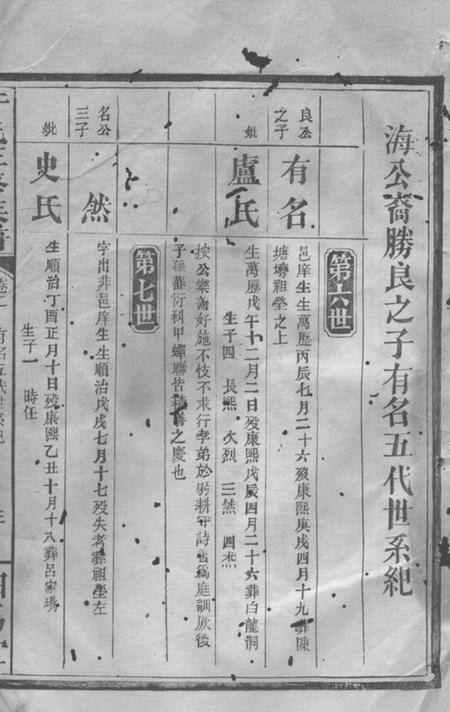 海公裔勝良之子有名五代世系紀
第六世
良公之子
有名
邑庠生生萬歷丙辰七月二十六殁康熙庚戌四月十九葬陳
塘塆祖塋之上
妣
盧氏
生萬歷戊午十二月二日殁康熙戊辰四月二十六葬白龍洞
生子四 長熙 次烈 三然 四杰
按公樂善好施不忮不求行孝弟於躬耕守詩書為庭訓厥後
子孫蕃衍科甲蟬聯皆積善之慶也
第七世
名公三子
然
字出非邑庠生生順治戊戌七月十七殁失考葬祖塋左
妣
史氏
生順治丁酉正月十日殁康熙乙丑十月十八葬呂家塆
生子一 時任